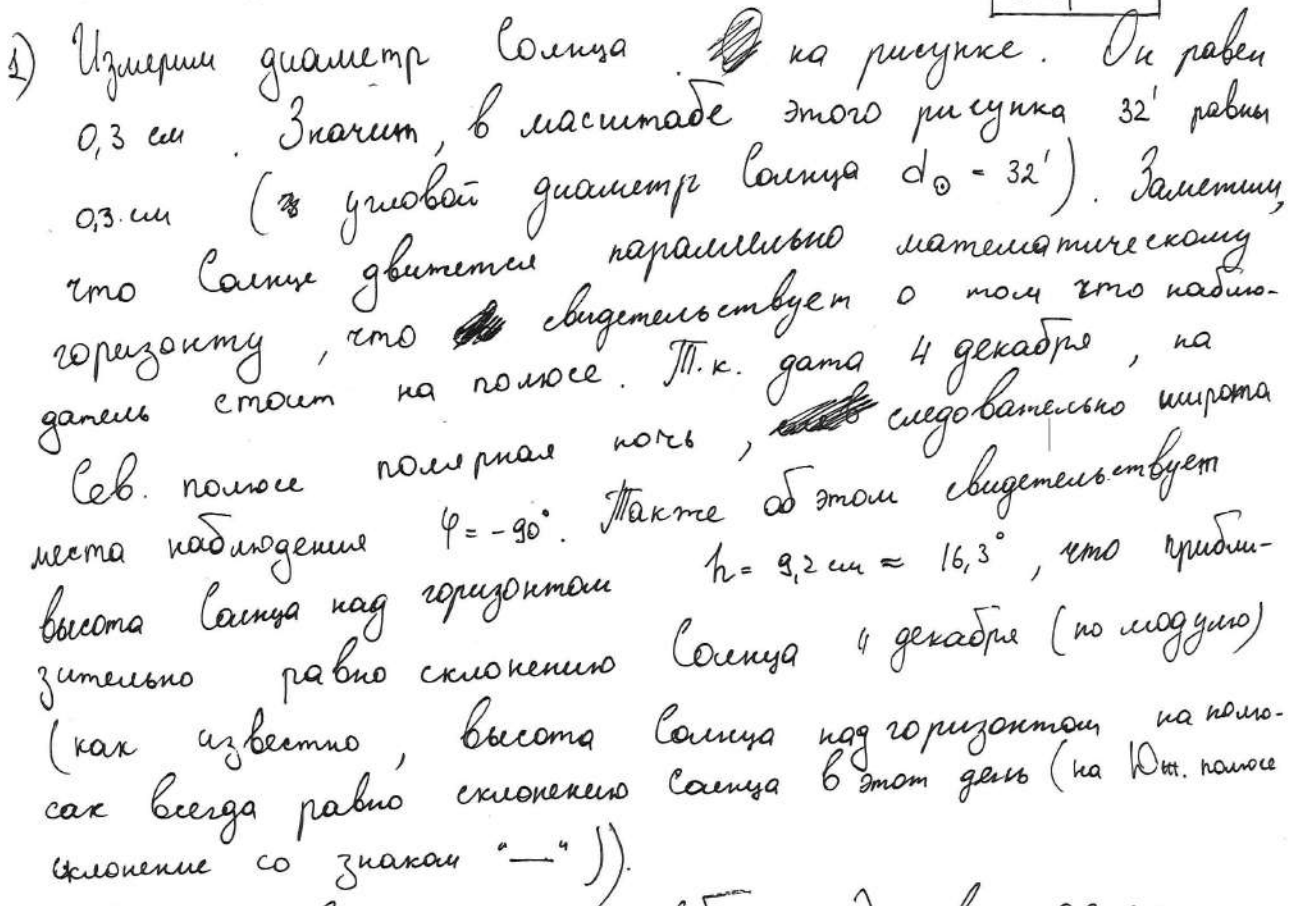 1) Измерим диаметр Солнца на рисунке. Он равен
0,3 см. Значит, в масштабе этого рисунка 32' равны
0,3 см (угловой диаметр Солнца d☉ = 32'). Заметим,
что Солнце движется параллельно математическому
горизонту, что свидетельствует о том что наблю-
датель стоит на полюсе. Т.к. дата 4 декабря, на
Сев. полюсе полярная ночь, следовательно широта
места наблюдения φ = -90°. Также об этом свидетельствует
высота Солнца над горизонтом h = 9,2 см ≈ 16,3°, что прибли-
зительно равно склонению Солнца 4 декабря (по модулю)
(как известно, высота Солнца над горизонтом на полю-
сах всегда равно склонению Солнца в этот день (на Юж. полюсе
склонение со знаком "—")).